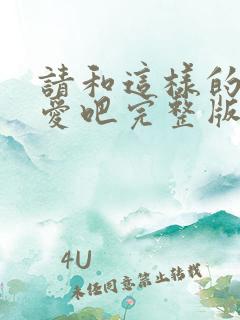 請和這樣的
愛吧完整版
4U
未任同意禁止转载